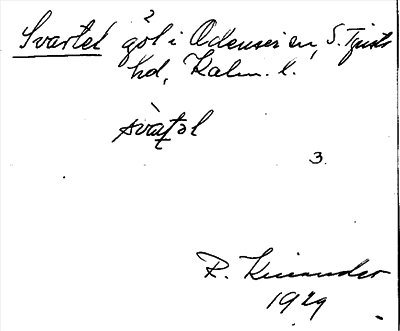 Svartel göl i Odensvi sn, S. Tjusts
hd, Kalm. l.
svat̤əl
3.
R. Kinander
1929